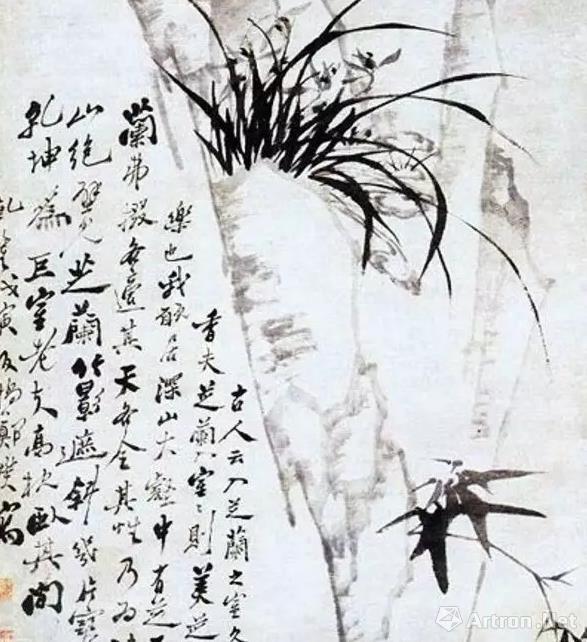 古人云入芝蘭之室久
香夫芝蘭入室〻則美
樂也我願居深山大壑中有芝
蘭弗掇各適其天各全其性乃為
山絶壁見芝蘭竹影遮斜幾片寒
乾坤為巨室老夫高枕臥其間
乾隆戊寅板橋鄭燮寫
Artron.Net